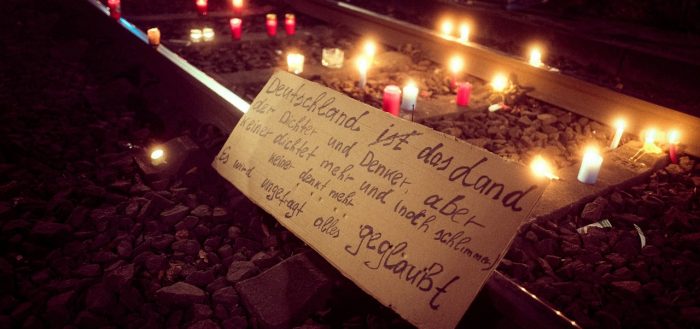 Deutschland ist das Land
der Dichter und Denker, aber
keiner dichtet mehr und (noch schlimmer)
keiner denkt mehr
Es wird ungefragt alles geglaubt